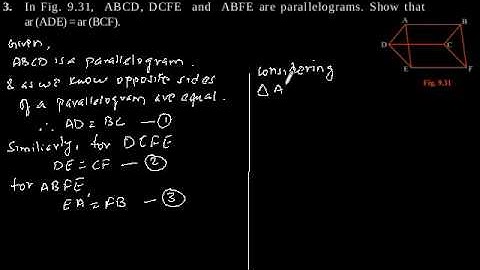 3. In Fig. 9.31, ABCD, DCFE and ABFE are parallelograms. Show that
ar (ADE) = ar (BCF).
A
B
D
C
E
F
Fig. 9.31
Given,
ABCD is a parallelogram.
& as we know opposite sides
of a parallelogram are equal.
∴ AD = BC — ①
Similiarly, for DCFE
DE = CF — ②
for ABFE,
EA = FB — ③
considering
△ A